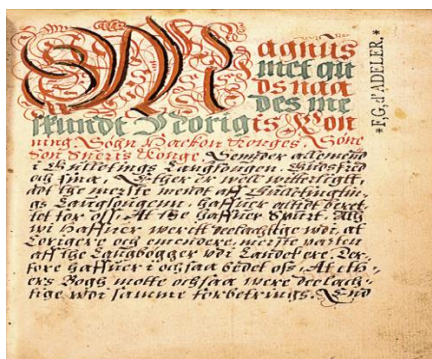 Magnus
met gu
ds naa
des me
skundt Norigis Kon
ning. Søgn Hackon Konges. Sóne
Son Sueris Konge. Sender allemend
i Gulletings Laugsongen. Gudsfred
och sinn. Athi her vell witterligt
dot the meste mendt aff Gulletingsin=
gs Laugsongenn. haffuer oltidt beret
tet for oss. At the haffuer Spurt. Att
wi haffuer weritt deelachtige wdi, at
Corigere och emendere, meste parten
aff the Laugbogger wdi Landet ere. Der-
fore haffuer i ochsaa bedet oss. At eth-
ers Bogh motte ochsaa were deelach-
tige wdi samme forbetrings. End
*F,G,d'ADELER.*